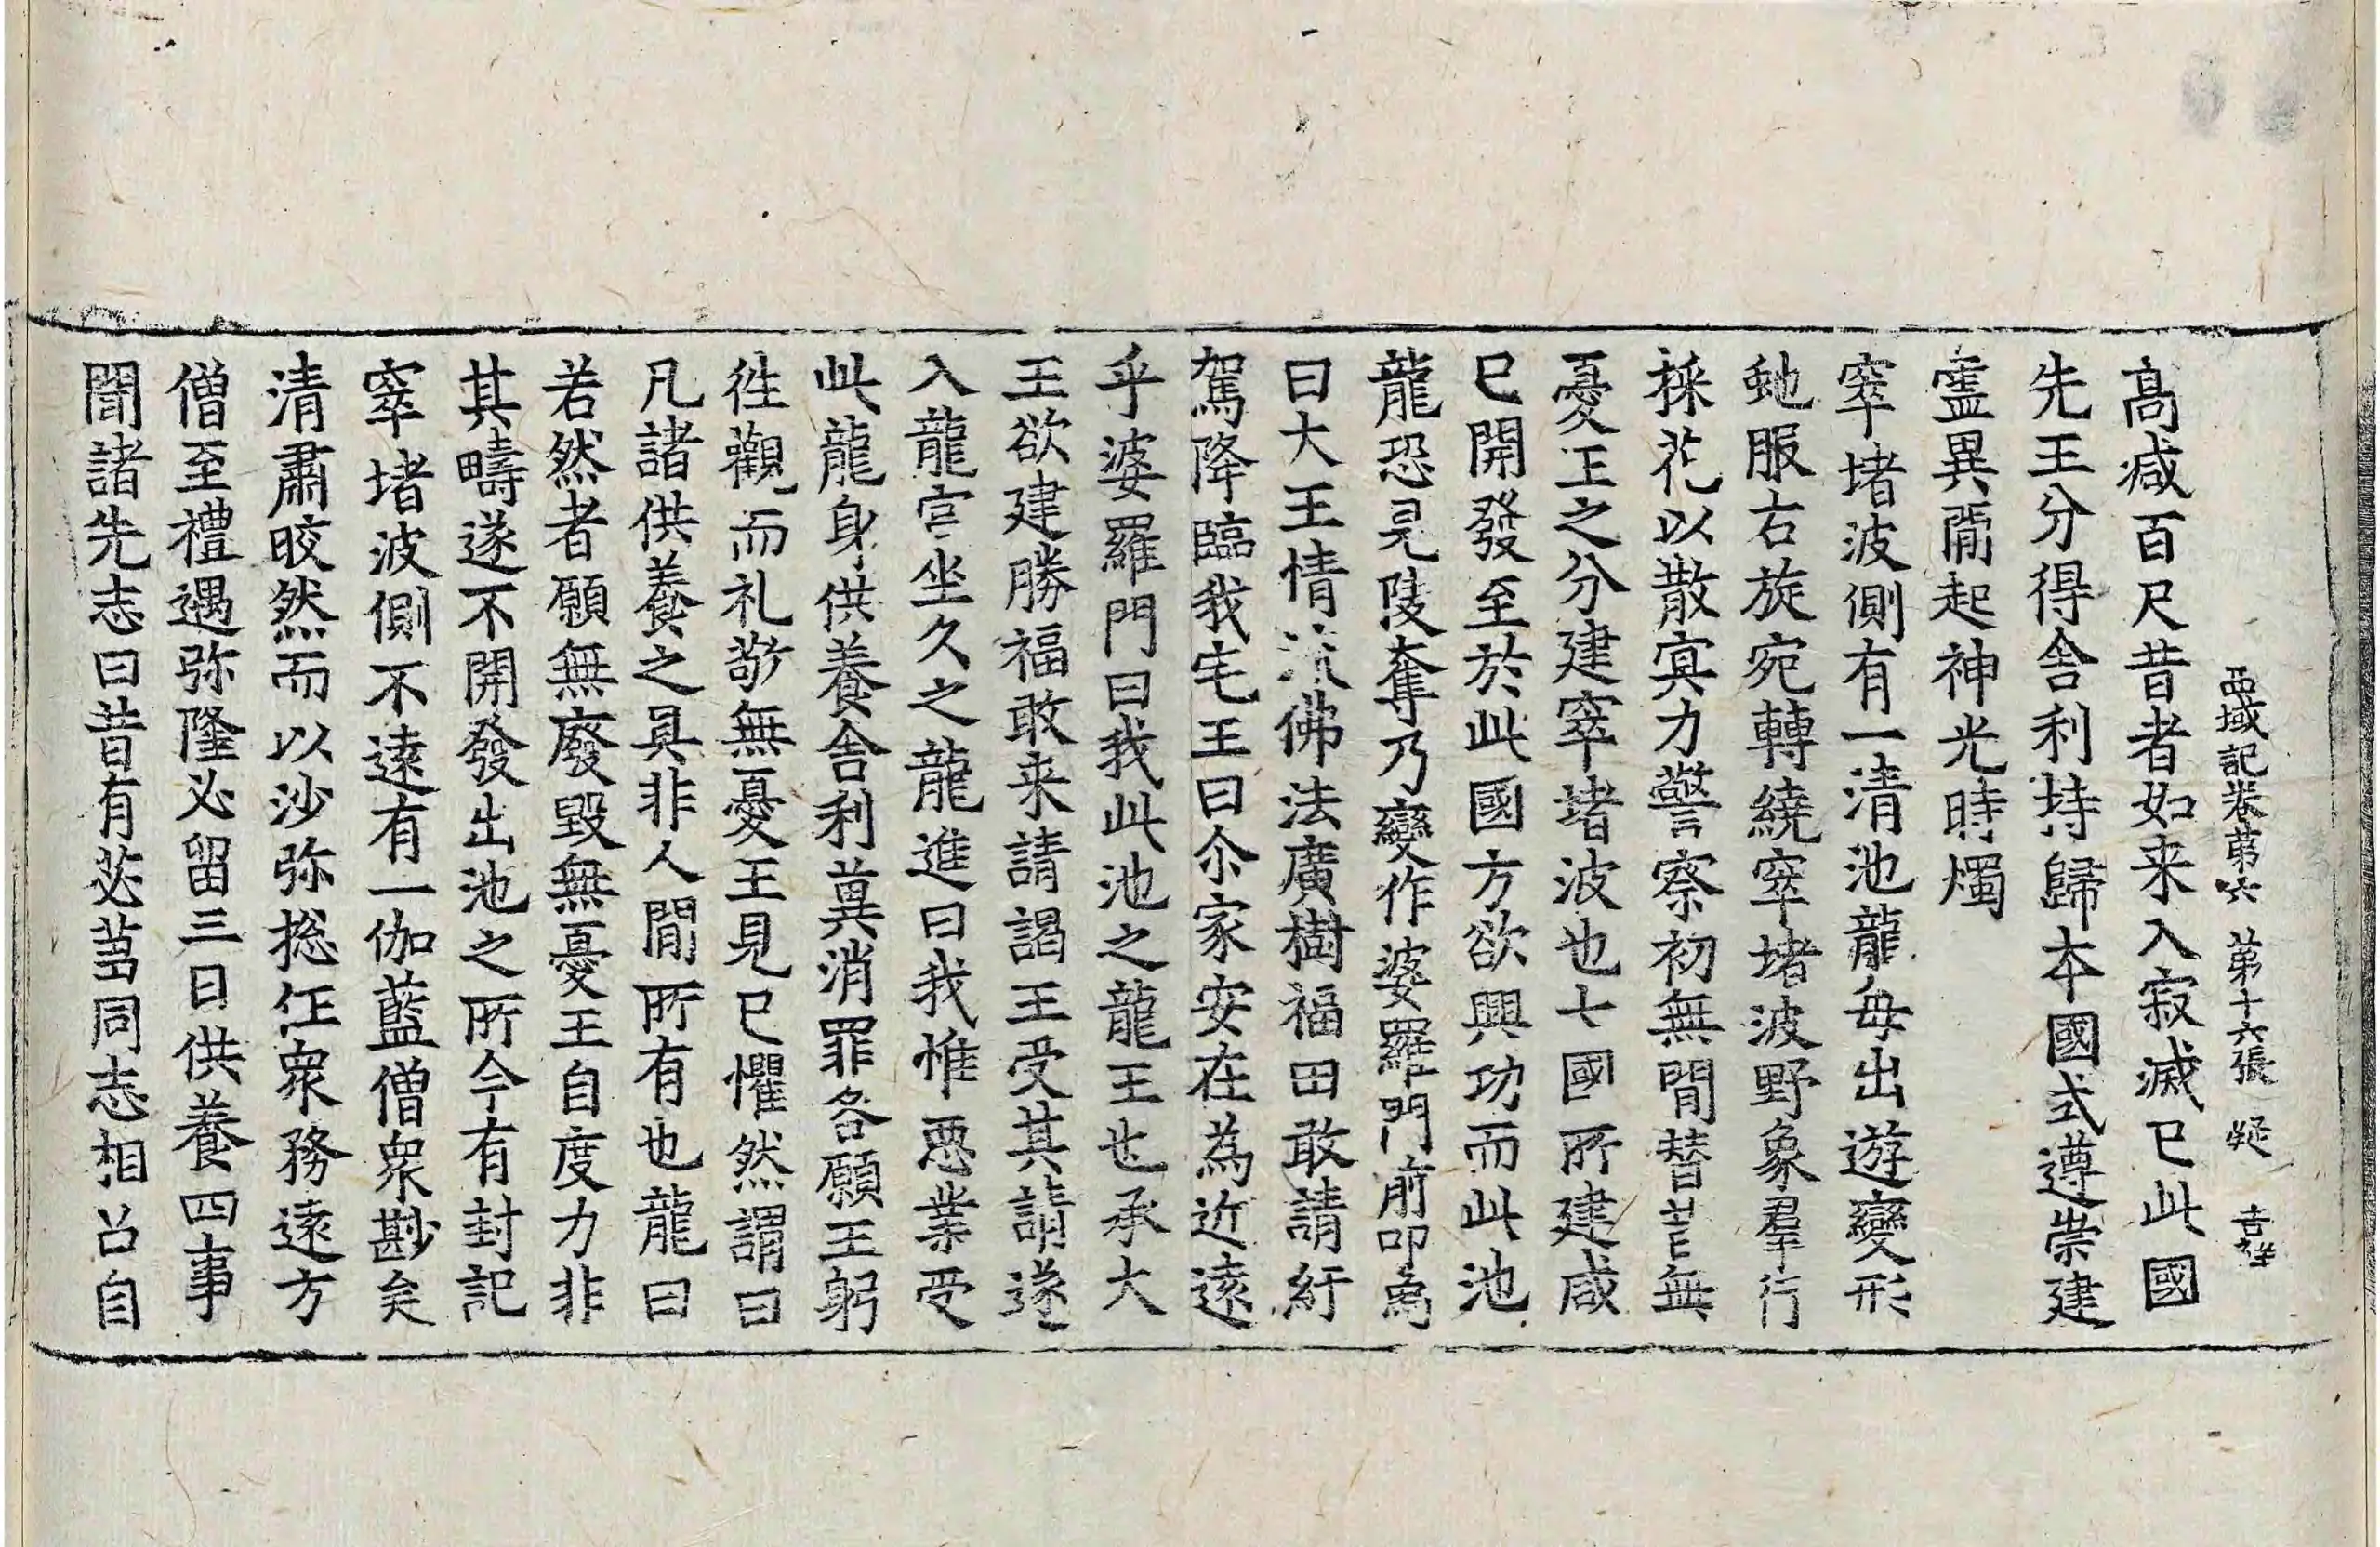 西域記卷苐六 苐十六張 疑 吉祥
髙减百尺昔者如来入寂滅已此國
先王分得舍利持歸本國式遵崇建
靈異間起神光時燭
窣堵波側有一清池龍每出遊變形
虵服右旋宛轉繞窣堵波野象羣行
採花以散冥力警察初無間替昔無
憂王之分建窣堵波也七國所建咸
已開發至於此國方欲興功而此池
龍恐見陵奪乃變作婆羅門前叩為
曰大王情流佛法廣樹福田敢請紆
駕降臨我宅王曰尒家安在為近遠
乎婆羅門曰我此池之龍王也承大
王欲建勝福敢来請謁王受其請遂
入龍宮坐久之龍進曰我惟惡業受
此龍身供養舍利兾消罪咎願王躬
徃觀而礼敬無憂王見已懼然謂曰
凡諸供養之具非人間所有也龍曰
若然者願無廢毀無憂王自度力非
其疇遂不開發出池之所今有封記
窣堵波側不遠有一伽藍僧衆尠矣
清肅皎然而以沙弥捴任衆務遠方
僧至禮遇弥隆必留三日供養四事
聞諸先志曰昔有苾蒭同志相召自